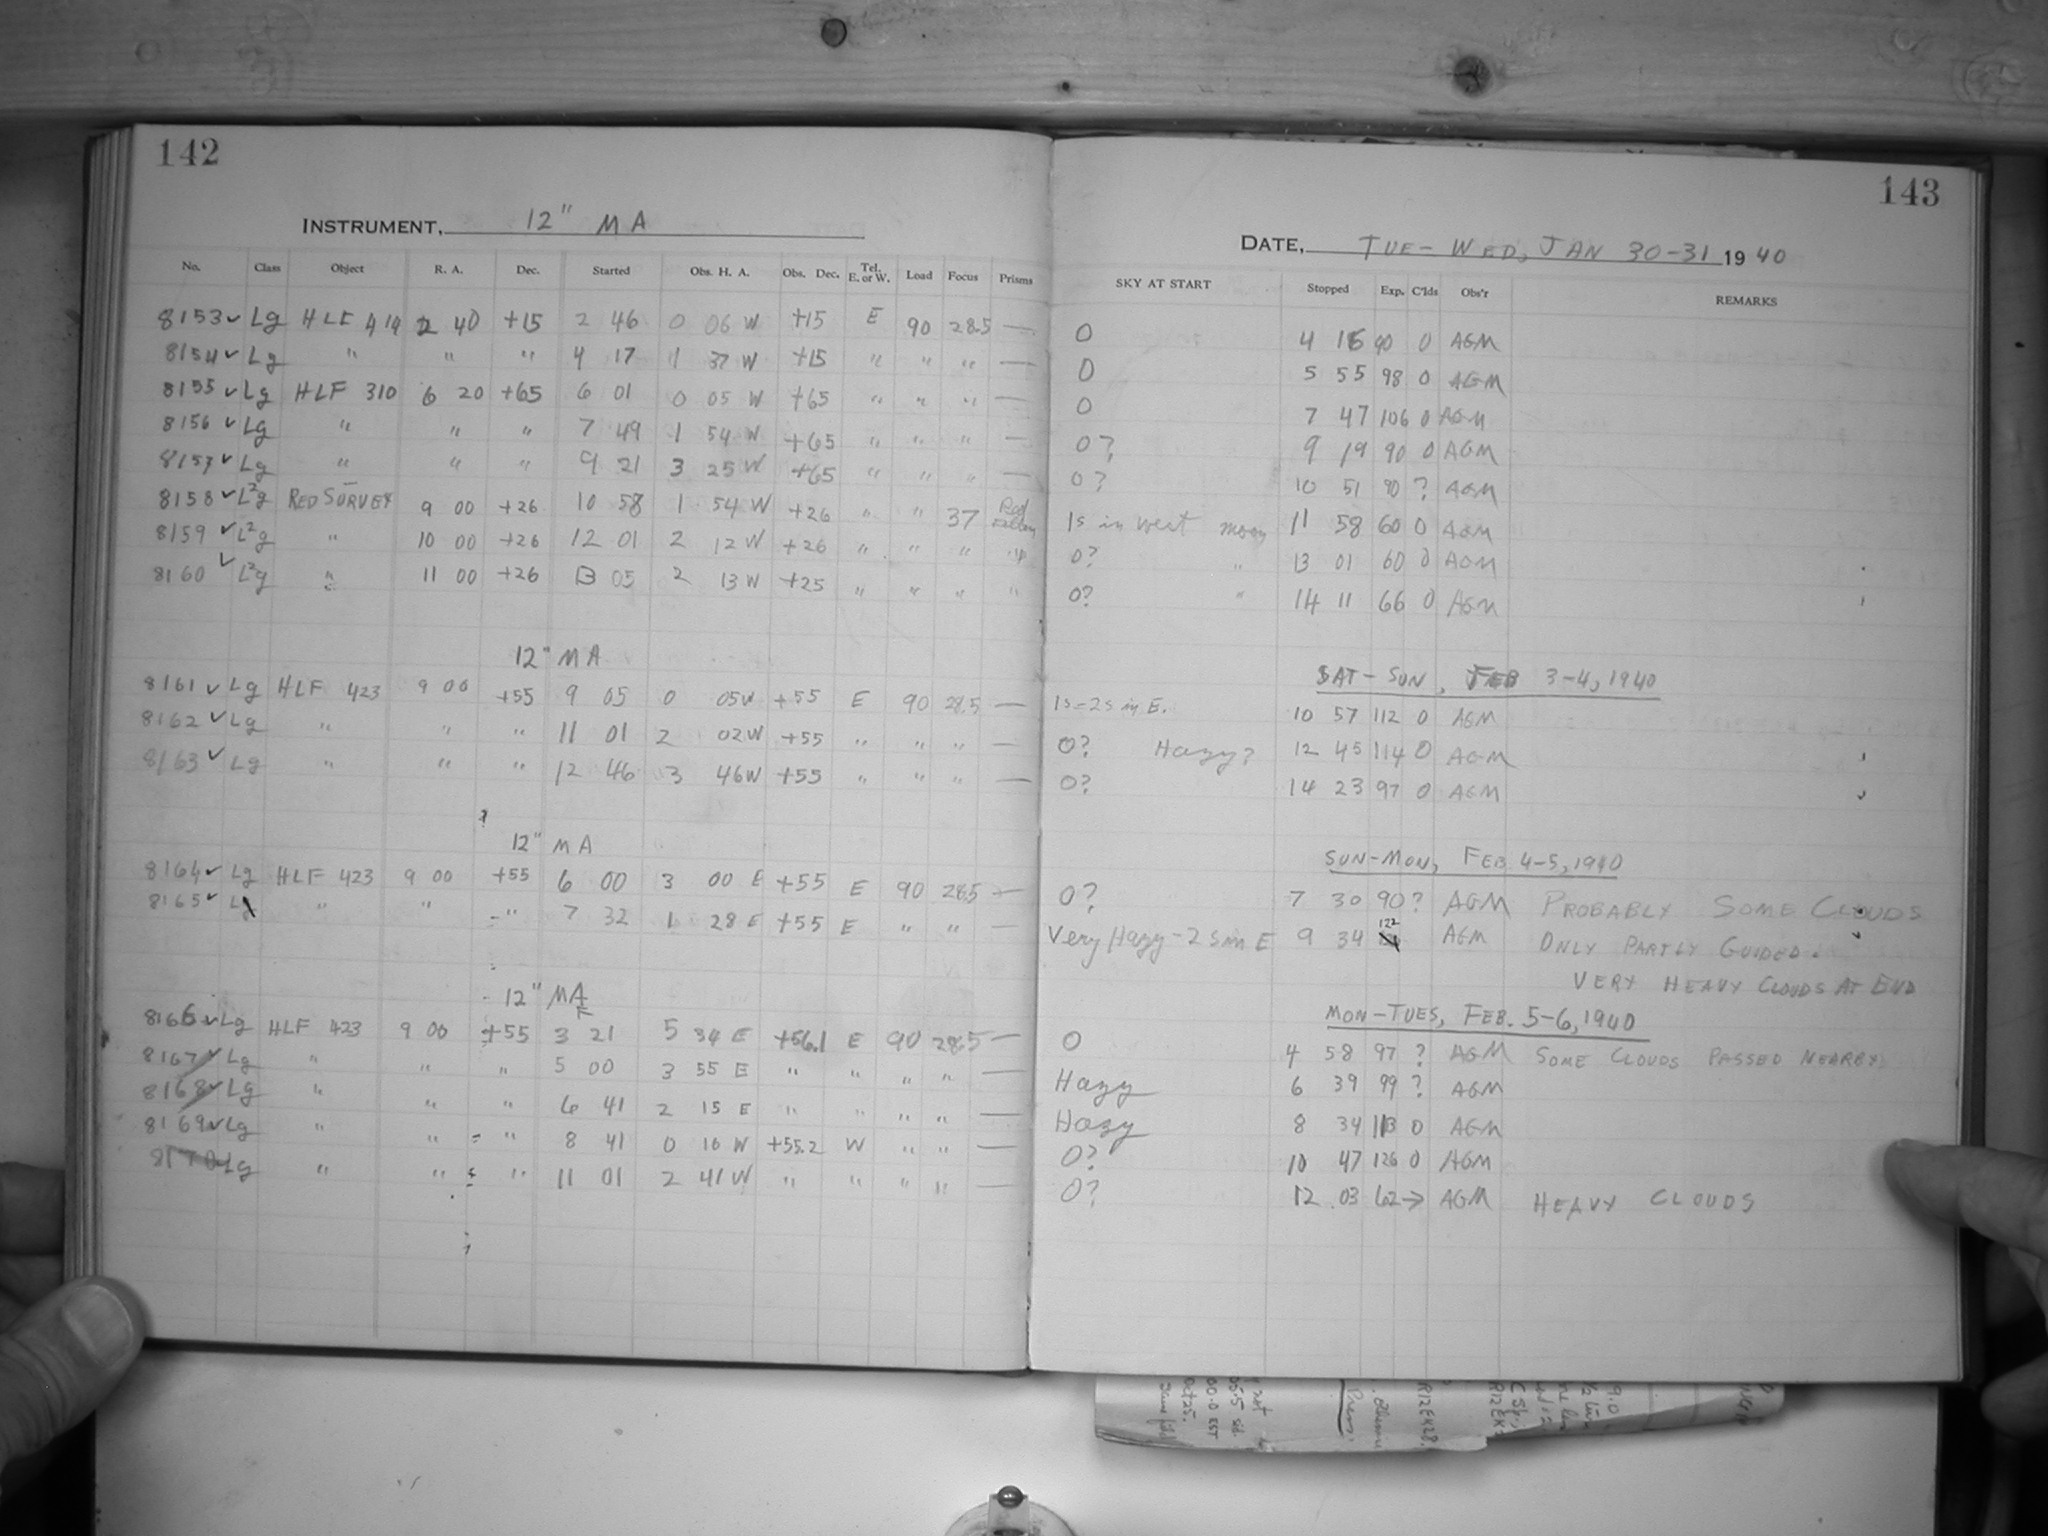 142
INSTRUMENT, 12" MA
No. Class Object R. A. Dec. Started Obs. H. A. Obs. Dec. Tel. E. or W. Load Focus Prisms
8153 ✓ Lg HLF 419 2 40 +15 2 46 0 06 W +15 E 90 28.5 —
8154 ✓ Lg " " " 4 17 1 37 W +15 " " " —
8155 ✓ Lg HLF 310 6 20 +65 6 01 0 05 W +65 " " " —
8156 ✓ Lg " " " 7 49 1 54 W +65 " " " —
8157 ✓ Lg " " " 9 21 3 25 W +65 " " " —
8158 ✓ L²g RED SURVEY 9 00 +26 10 58 1 54 W +26 " " 37 Red
8159 ✓ L²g " 10 00 +26 12 01 2 12 W +26 " " " "
8160 ✓ L²g " 11 00 +26 13 05 2 13 W +25 " " " "
12" MA
8161 ✓ Lg HLF 423 9 00 +55 9 05 0 05 W +55 E 90 28.5 —
8162 ✓ Lg " " " 11 01 2 02 W +55 " " " —
8163 ✓ Lg " " " 12 46 3 46 W +55 " " " —
12" MA
8164 ✓ Lg HLF 423 9 00 +55 6 00 3 00 E +55 E 90 28.5 —
8165 ✓ Lg " " " 7 32 1 28 E +55 E " " —
12" MA
8166 ✓ Lg HLF 423 9 00 +55 3 21 5 34 E +56.1 E 90 28.5 —
8167 ✓ Lg " " " 5 00 3 55 E " " " " —
8168 ✓ Lg " " " 6 41 2 15 E " " " " —
8169 ✓ Lg " " " 8 41 0 16 W +55.2 W " " —
8170 Lg " " " 11 01 2 41 W " " " " —
143
DATE, TUE-WED, JAN 30-31 1940
SKY AT START Stopped Exp. C'lds Obs'r REMARKS
0 4 16 90 0 AGM
0 5 55 98 0 AGM
0 7 47 106 0 AGM
0? 9 19 90 0 AGM
0? 10 51 90 ? AGM
1s in west moon 11 58 60 0 AGM
0? " 13 01 60 0 AGM
0? " 14 11 66 0 AGM
SAT-SUN, FEB 3-4, 1940
1s-2s in E. 10 57 112 0 AGM
0? Hazy? 12 45 114 0 AGM
0? 14 23 97 0 AGM
SUN-MON, FEB. 4-5, 1940
0? 7 30 90 ? AGM PROBABLY SOME CLOUDS
Very Hazy - 2s in E 9 34 122 AGM ONLY PARTLY GUIDED.
VERY HEAVY CLOUDS AT END
MON-TUES, FEB. 5-6, 1940
0 4 58 97 ? AGM SOME CLOUDS PASSED NEARBY
Hazy 6 39 99 ? AGM
Hazy 8 34 113 0 AGM
0? 10 47 126 0 AGM
0? 12 03 62 → AGM HEAVY CLOUDS